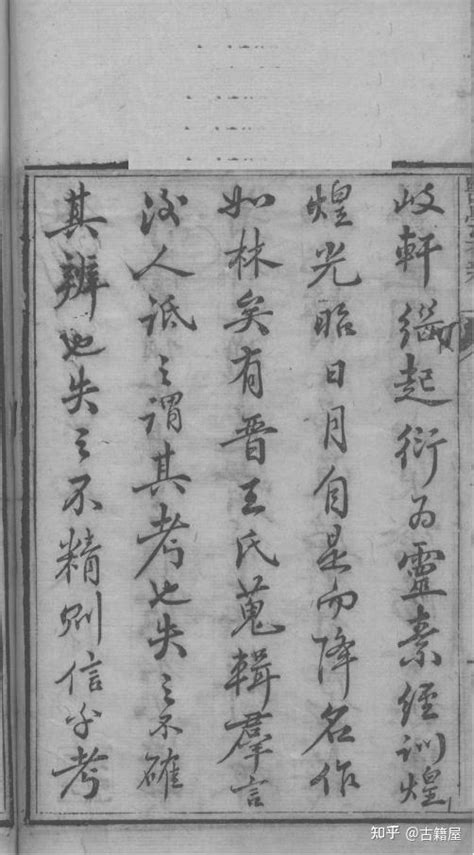 岐軒繼起衍為靈素經訓煌
煌光昭日月自是而降名作
如林矣有晋王氏蒐輯羣言
後人詆之謂其考也失之不確
其辨也失之不精則信乎考
知乎 @古籍屋